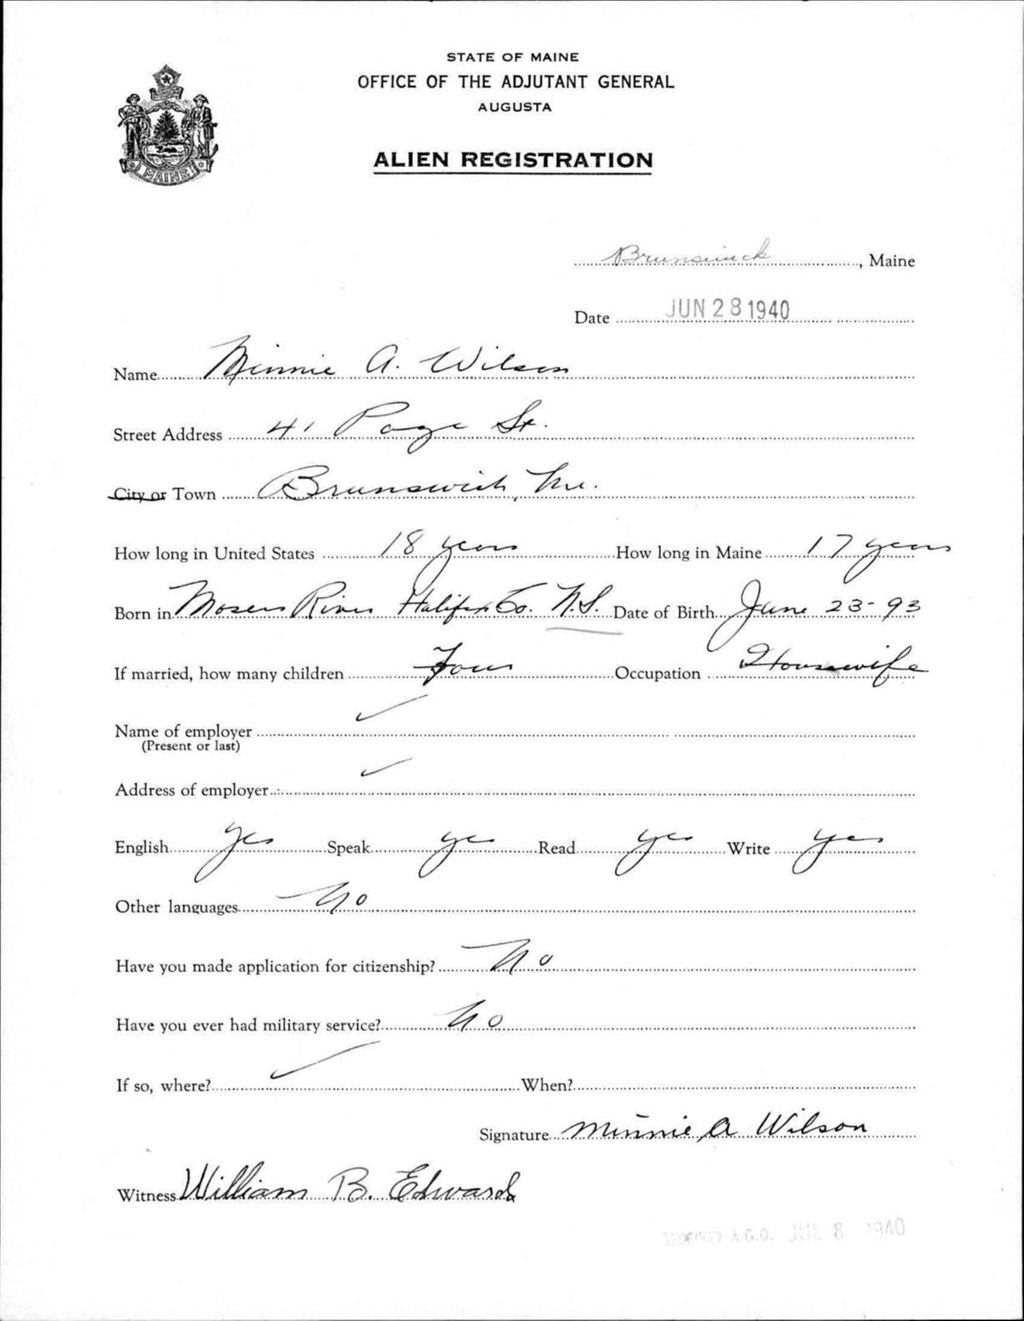 STATE OF MAINE
OFFICE OF THE ADJUTANT GENERAL
AUGUSTA
ALIEN REGISTRATION
MAINE
Brunswick, Maine
Date JUN 28 1940
Name Minnie A. Wilson
Street Address 41 Page St.
City or Town Brunswick, Me.
How long in United States 18 years How long in Maine 17 years
Born in Moser River Halifax Co. N.S. Date of Birth June 23-93
If married, how many children Four Occupation Housewife
Name of employer
(Present or last)
Address of employer
English yes Speak yes Read yes Write yes
Other languages No
Have you made application for citizenship? No
Have you ever had military service? No
If so, where? When?
Signature Minnie A Wilson
Witness William B. Edwards
A.G.O. JUL 8 1940